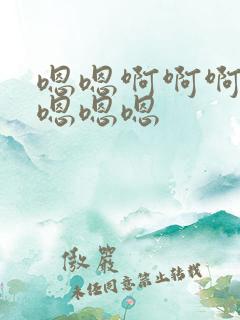 嗯嗯啊啊啊
嗯嗯嗯
傲严
未经同意禁止转载